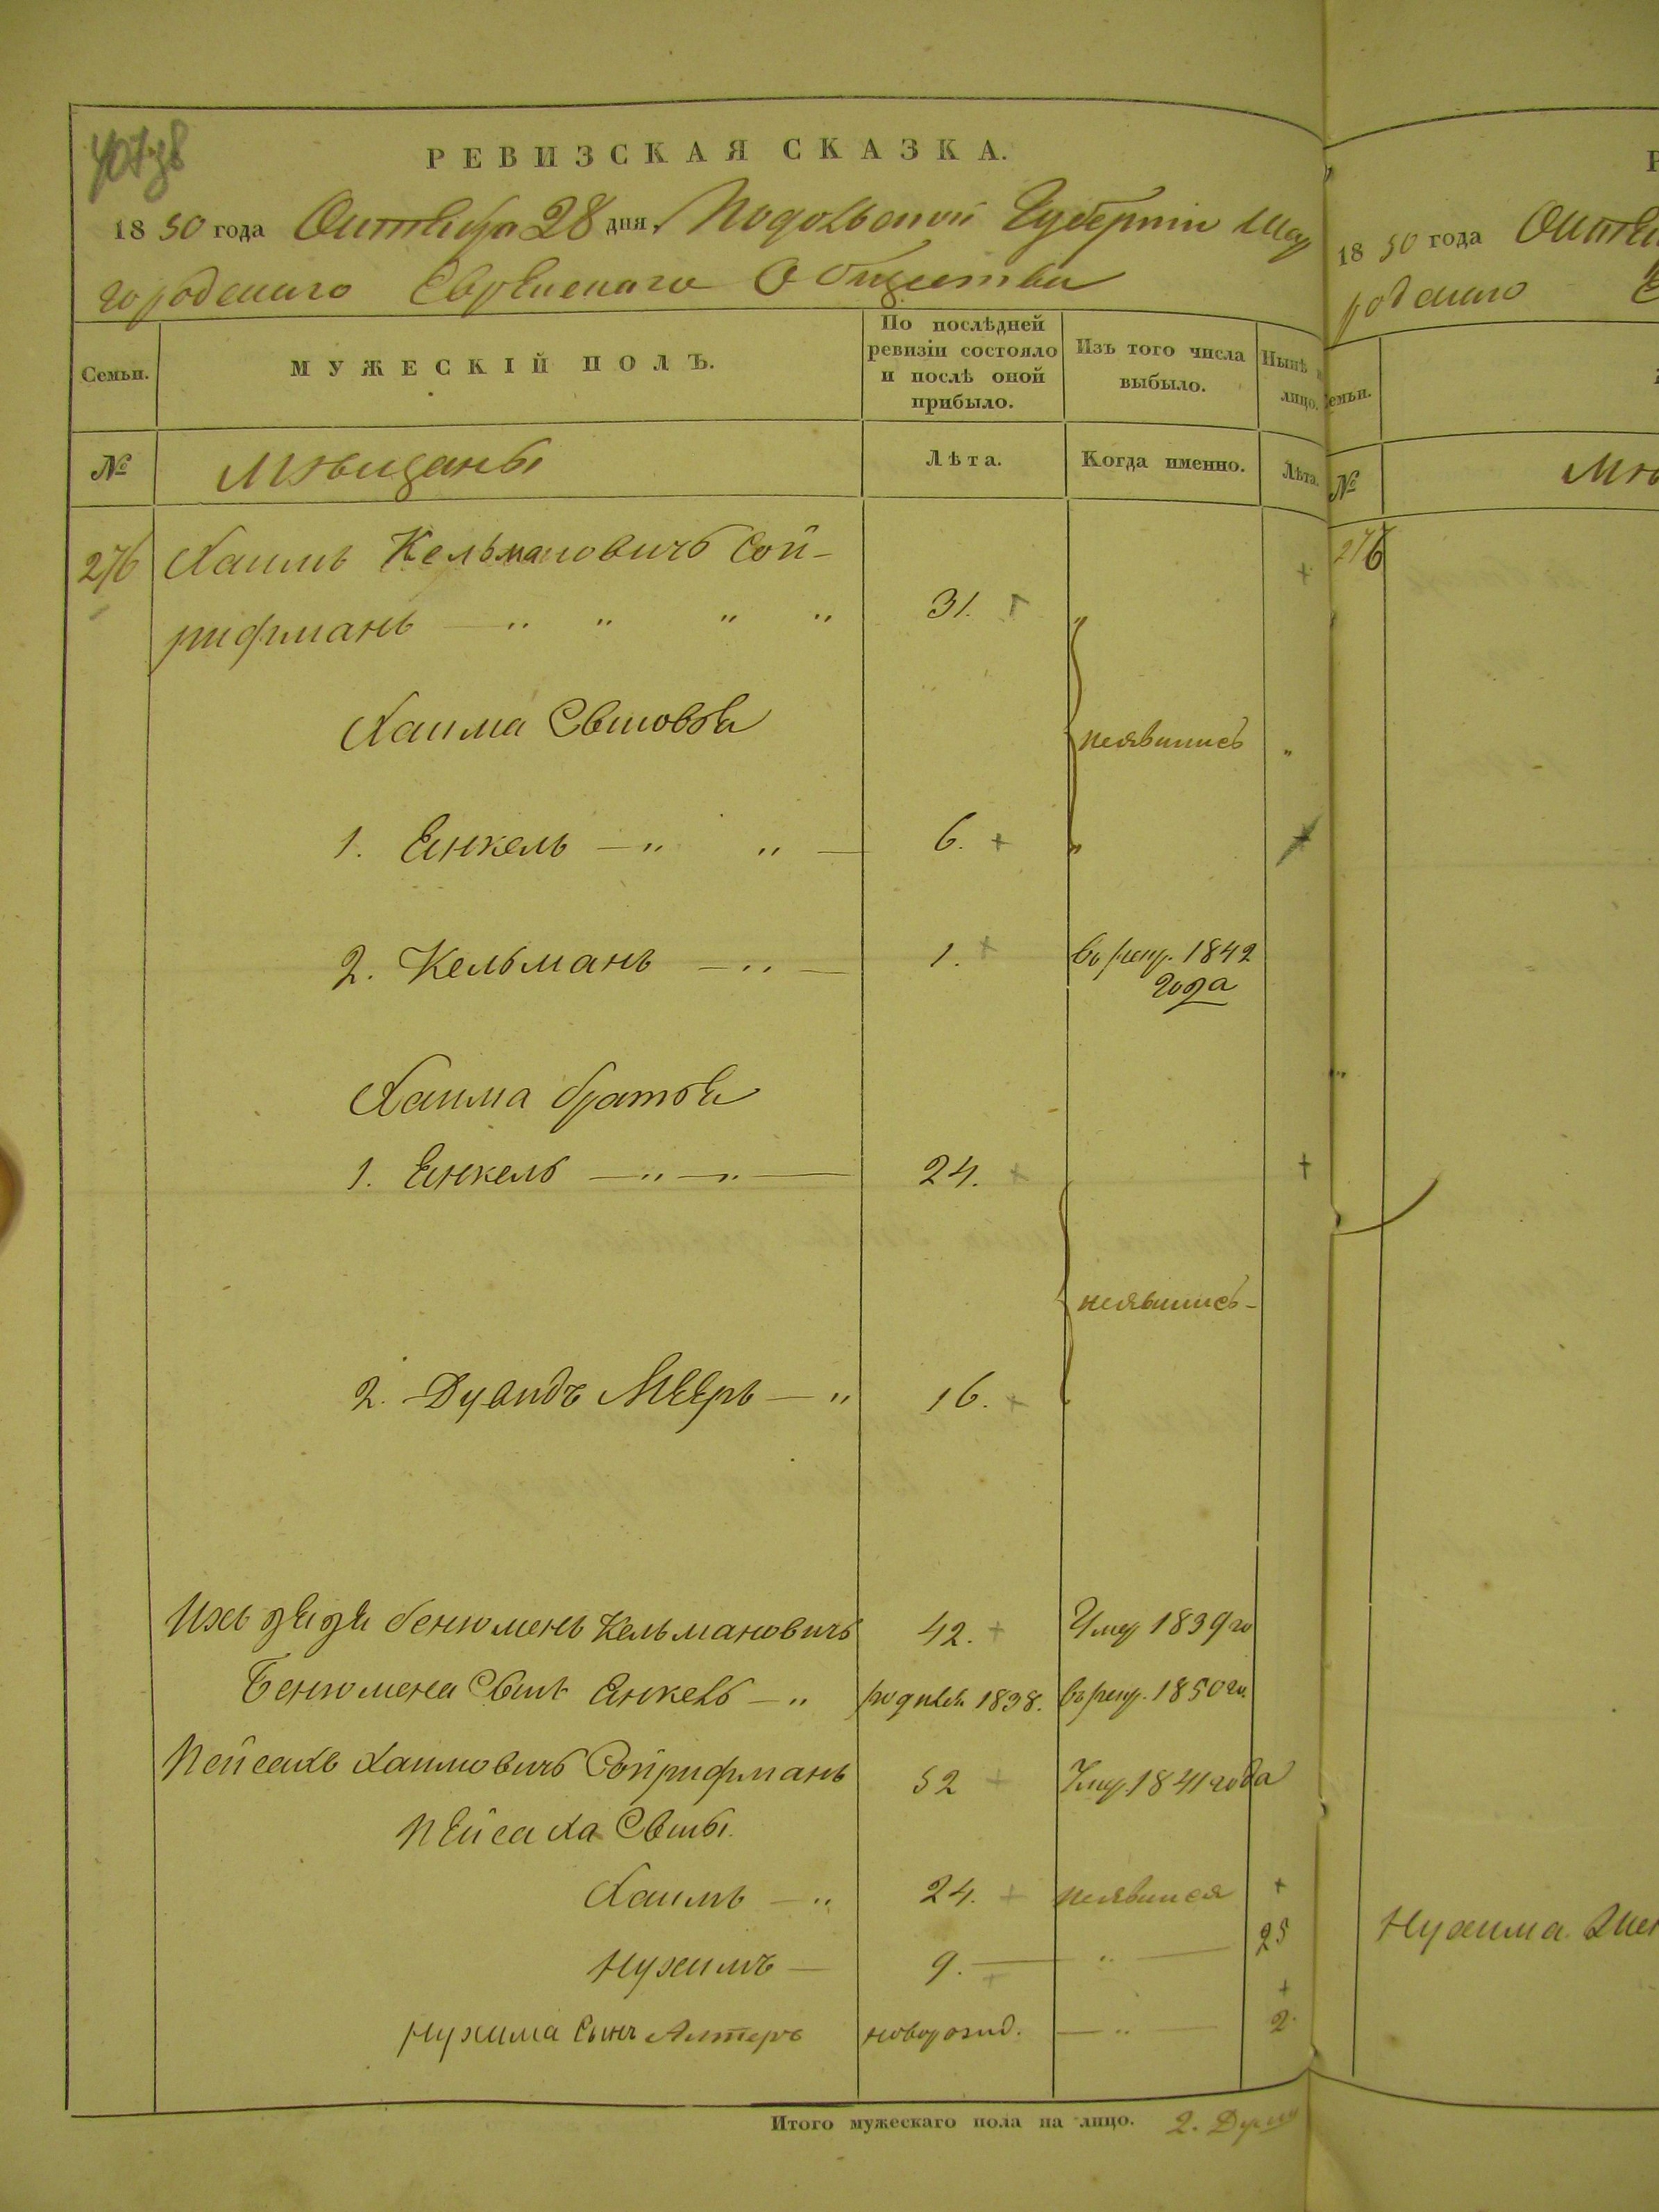 РЕВИЗСКАЯ СКАЗКА.
1850 года Октября 28 дня, Подольской Губернiи Шар
городскаго Еврейскаго Общества
Семьи.
МУЖЕСКIЙ ПОЛЪ.
По послѣдней ревизiи состояло и послѣ оной прибыло.
Изъ того числа выбыло.
Нынѣ
лицо.
№ Мѣщаны Лѣта. Когда именно. Лѣта.
276 Хаимъ Кельмановичъ Сой-
рифманъ 31.
Хаима Сыновья неявились
1. Янкель 6.
2. Кельманъ 1. въ рекр. 1842
года
Хаима братья
1. Янкель 24.
неявились
2. Дувидъ Мееръ 16.
Ихъ дядя бенюменъ Кельмановичъ 42. Умер 1839 го
Бенюмена Сынъ Янкель родился 1838. въ рекр. 1850 го.
Пейсахъ Хаимовичъ Сойрифманъ 52 Умер. 1841 года
Пейсаха Сыны.
Хаимъ 24. неявился
Нухимъ 9. 25
Нухима Сынъ Алтеръ новорожд. 2.
Итого мужескаго пола на лицо. 2. Души
18 50 года
родскаго
емьи.
№
276
Нухима